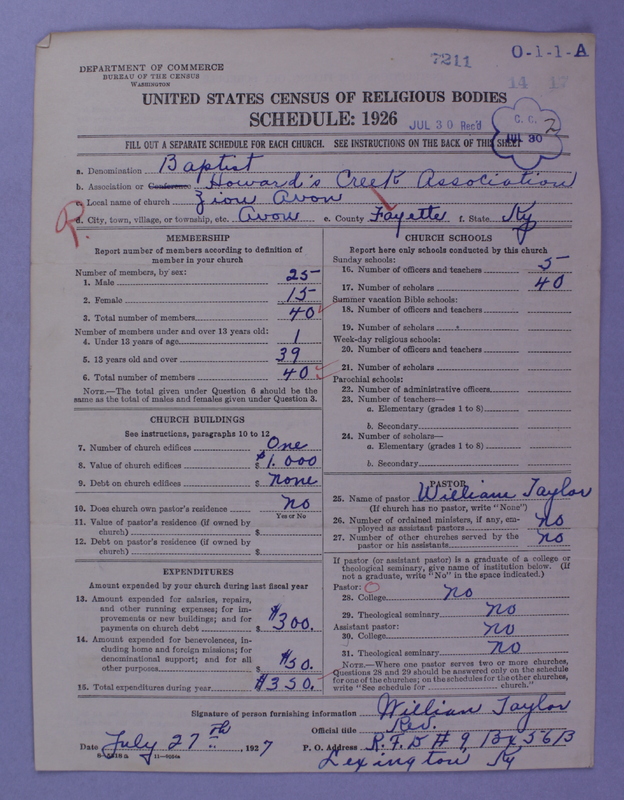 7211
O-1-1-A
14 17
DEPARTMENT OF COMMERCE
BUREAU OF THE CENSUS
WASHINGTON
UNITED STATES CENSUS OF RELIGIOUS BODIES
SCHEDULE: 1926
JUL 30 Rec'd
C. C. 2
JUL 30
FILL OUT A SEPARATE SCHEDULE FOR EACH CHURCH. SEE INSTRUCTIONS ON THE BACK OF THIS SHEET
a. Denomination Baptist
b. Association or Conference Howard's Creek Association
c. Local name of church Zion Avon
R.
d. City, town, village, or township, etc. Avon e. County Fayette f. State Ky
MEMBERSHIP
Report number of members according to definition of
member in your church
Number of members, by sex:
1. Male 25
2. Female 15
3. Total number of members 40
Number of members under and over 13 years old:
4. Under 13 years of age 1
5. 13 years old and over 39
6. Total number of members 40
NOTE.—The total given under Question 6 should be the
same as the total of males and females given under Question 3.
CHURCH BUILDINGS
See instructions, paragraphs 10 to 12
7. Number of church edifices One
8. Value of church edifices $ $1.000
9. Debt on church edifices $ none
10. Does church own pastor's residence no
Yes or No
11. Value of pastor's residence (if owned by
church) $
12. Debt on pastor's residence (if owned by
church) $
EXPENDITURES
Amount expended by your church during last fiscal year
13. Amount expended for salaries, repairs,
and other running expenses; for im-
provements or new buildings; and for
payments on church debt $ $300.
14. Amount expended for benevolences, in-
cluding home and foreign missions; for
denominational support; and for all
other purposes $ $50.
15. Total expenditures during year $350.
CHURCH SCHOOLS
Report here only schools conducted by this church
Sunday schools:
16. Number of officers and teachers 5
17. Number of scholars 40
Summer vacation Bible schools:
18. Number of officers and teachers
19. Number of scholars
Week-day religious schools:
20. Number of officers and teachers
21. Number of scholars
Parochial schools:
22. Number of administrative officers
23. Number of teachers—
a. Elementary (grades 1 to 8)
b. Secondary
24. Number of scholars—
a. Elementary (grades 1 to 8)
b. Secondary
PASTOR
25. Name of pastor William Taylor
(If church has no pastor, write "None")
26. Number of ordained ministers, if any, em-
ployed as assistant pastors no
27. Number of other churches served by the
pastor or his assistants no
If pastor (or assistant pastor) is a graduate of a college or
theological seminary, give name of institution below. (If
not a graduate, write "No" in the space indicated.)
Pastor:
28. College no
29. Theological seminary no
Assistant pastor:
30. College no
31. Theological seminary no
NOTE.—Where one pastor serves two or more churches,
Questions 28 and 29 should be answered only on the schedule
for one of the churches; on the schedules for the other churches,
write "See schedule for church."
Signature of person furnishing information William Taylor
Official title Rev.
Date July 27th, 1927 P. O. Address R.F.D # 9, Bx 561B
Lexington Ky